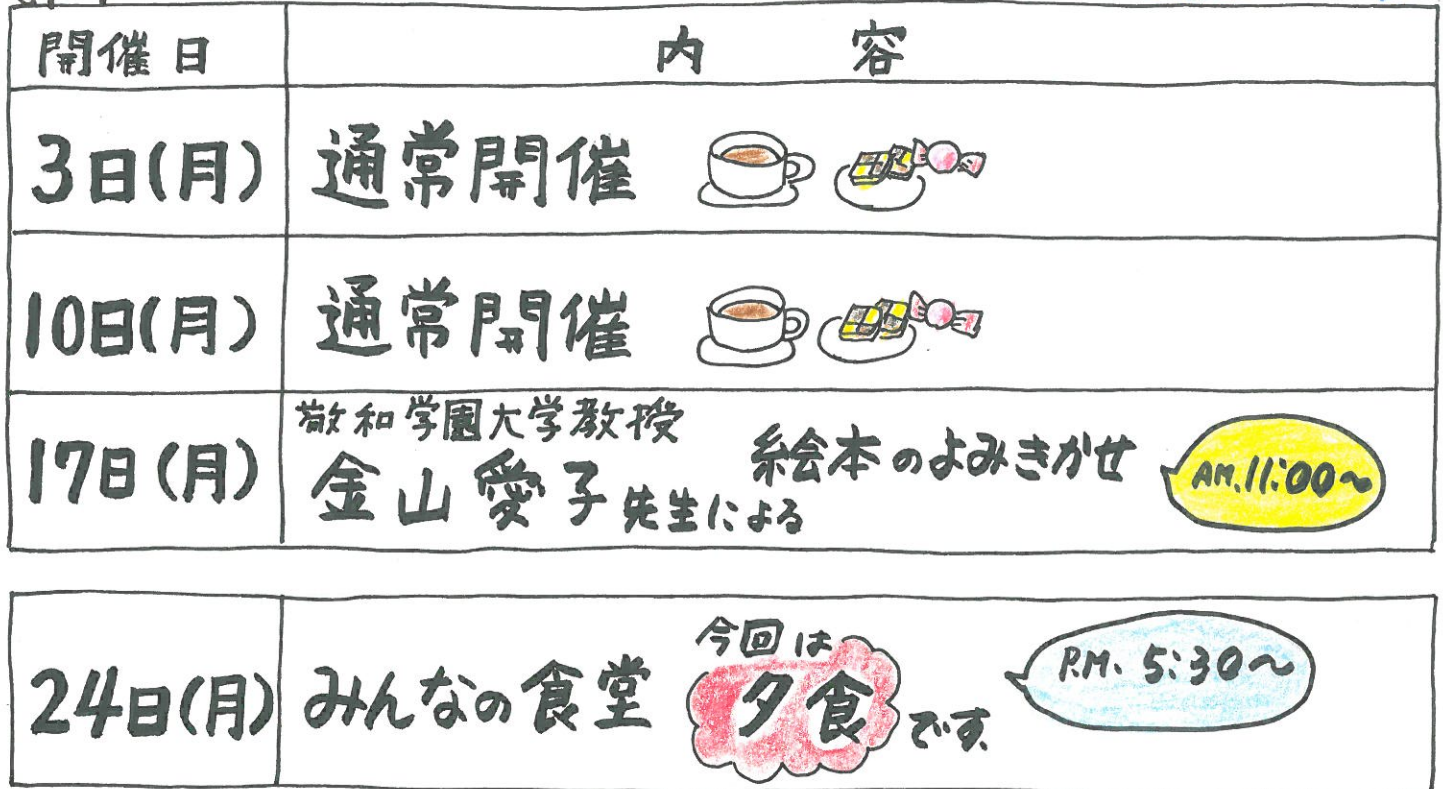 開催日 内容
3日(月) 通常開催
10日(月) 通常開催
17日(月) 敬和学園大学教授
金山愛子先生による 絵本のよみきかせ AM.11:00~
24日(月) みんなの食堂 今回は夕食です。 P.M. 5:30~